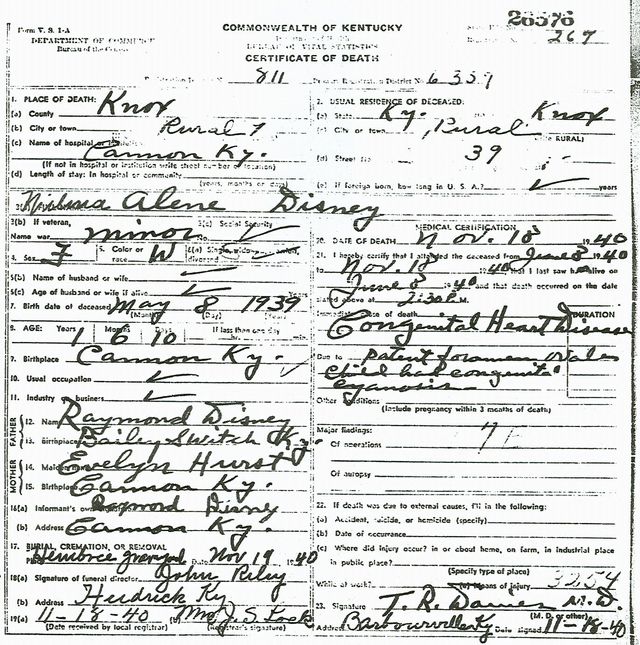 26576
Form V. S. 1-A
COMMONWEALTH OF KENTUCKY
267
DEPARTMENT OF COMMERCE
Bureau of the Census
BUREAU OF VITAL STATISTICS
CERTIFICATE OF DEATH
811
Registration District No. 6357
1. PLACE OF DEATH:
(a) County Knox
(b) City or town Rural 7
(c) Name of hospital or
Cannon Ky.
(If not in hospital or institution write street number or location)
(d) Length of stay: In hospital or community
(years, months or days)
2. USUAL RESIDENCE OF DECEASED:
(a) State Ky. Knox
(c) City or town Rural
RURAL)
(d) Street No. 39
(e) If foreign born, how long in U. S. A.? ✓ years
Alene Disney
3(b) If veteran,
Name war minor
3(c) Social Security
✓
4. Sex F
5. Color or race W
divorced
6(b) Name of husband or wife ✓
6(c) Age of husband or wife if alive ✓
7. Birth date of deceased May 8 1939
(Month) (Day)
8. AGE: Years Months Days If less than one day
1 6 10
9. Birthplace Cannon Ky.
10. Usual occupation ✓
11. Industry or business ✓
FATHER
12. Name Raymond Disney
13. Birthplace Bailey Switch Ky.
MOTHER
14. Maiden name Evelyn Hurst
15. Birthplace Cannon Ky.
16(a) Informant's own Raymond Disney
(b) Address Cannon Ky.
17. BURIAL, CREMATION, OR REMOVAL
Date Nov 19 1940
18(a) Signature of funeral director John Riley
(b) Address Hedrick Ky
19(a) 11-18-40 (b) Mrs. J. S.
(Date received by local registrar) (Registrar's signature)
MEDICAL CERTIFICATION
20. DATE OF DEATH Nov. 18 1940
21. I hereby certify that I attended the deceased from June 8 1940
to Nov. 18 1940 that I last saw her alive on
June 8 1940 and that death occurred on the date
stated above at 2:30 P.M.
Immediate cause of death DURATION
Congenital Heart Disease
Due to patent foramen ovale
child had congenital
cyanosis
Other conditions
(Include pregnancy within 3 months of death)
Major findings:
Of operations
Of autopsy
22. If death was due to external causes, fill in the following:
(a) Accident, suicide, or homicide (specify)
(b) Date of occurrence
(c) Where did injury occur? in or about home, on farm, in industrial place
in public place?
(Specify type of place)
While at work? (e) Means of injury 3254
23. Signature T. R. Davies M. D.
(M. D. or other)
Address Barbourville Ky Date signed 11-18-40